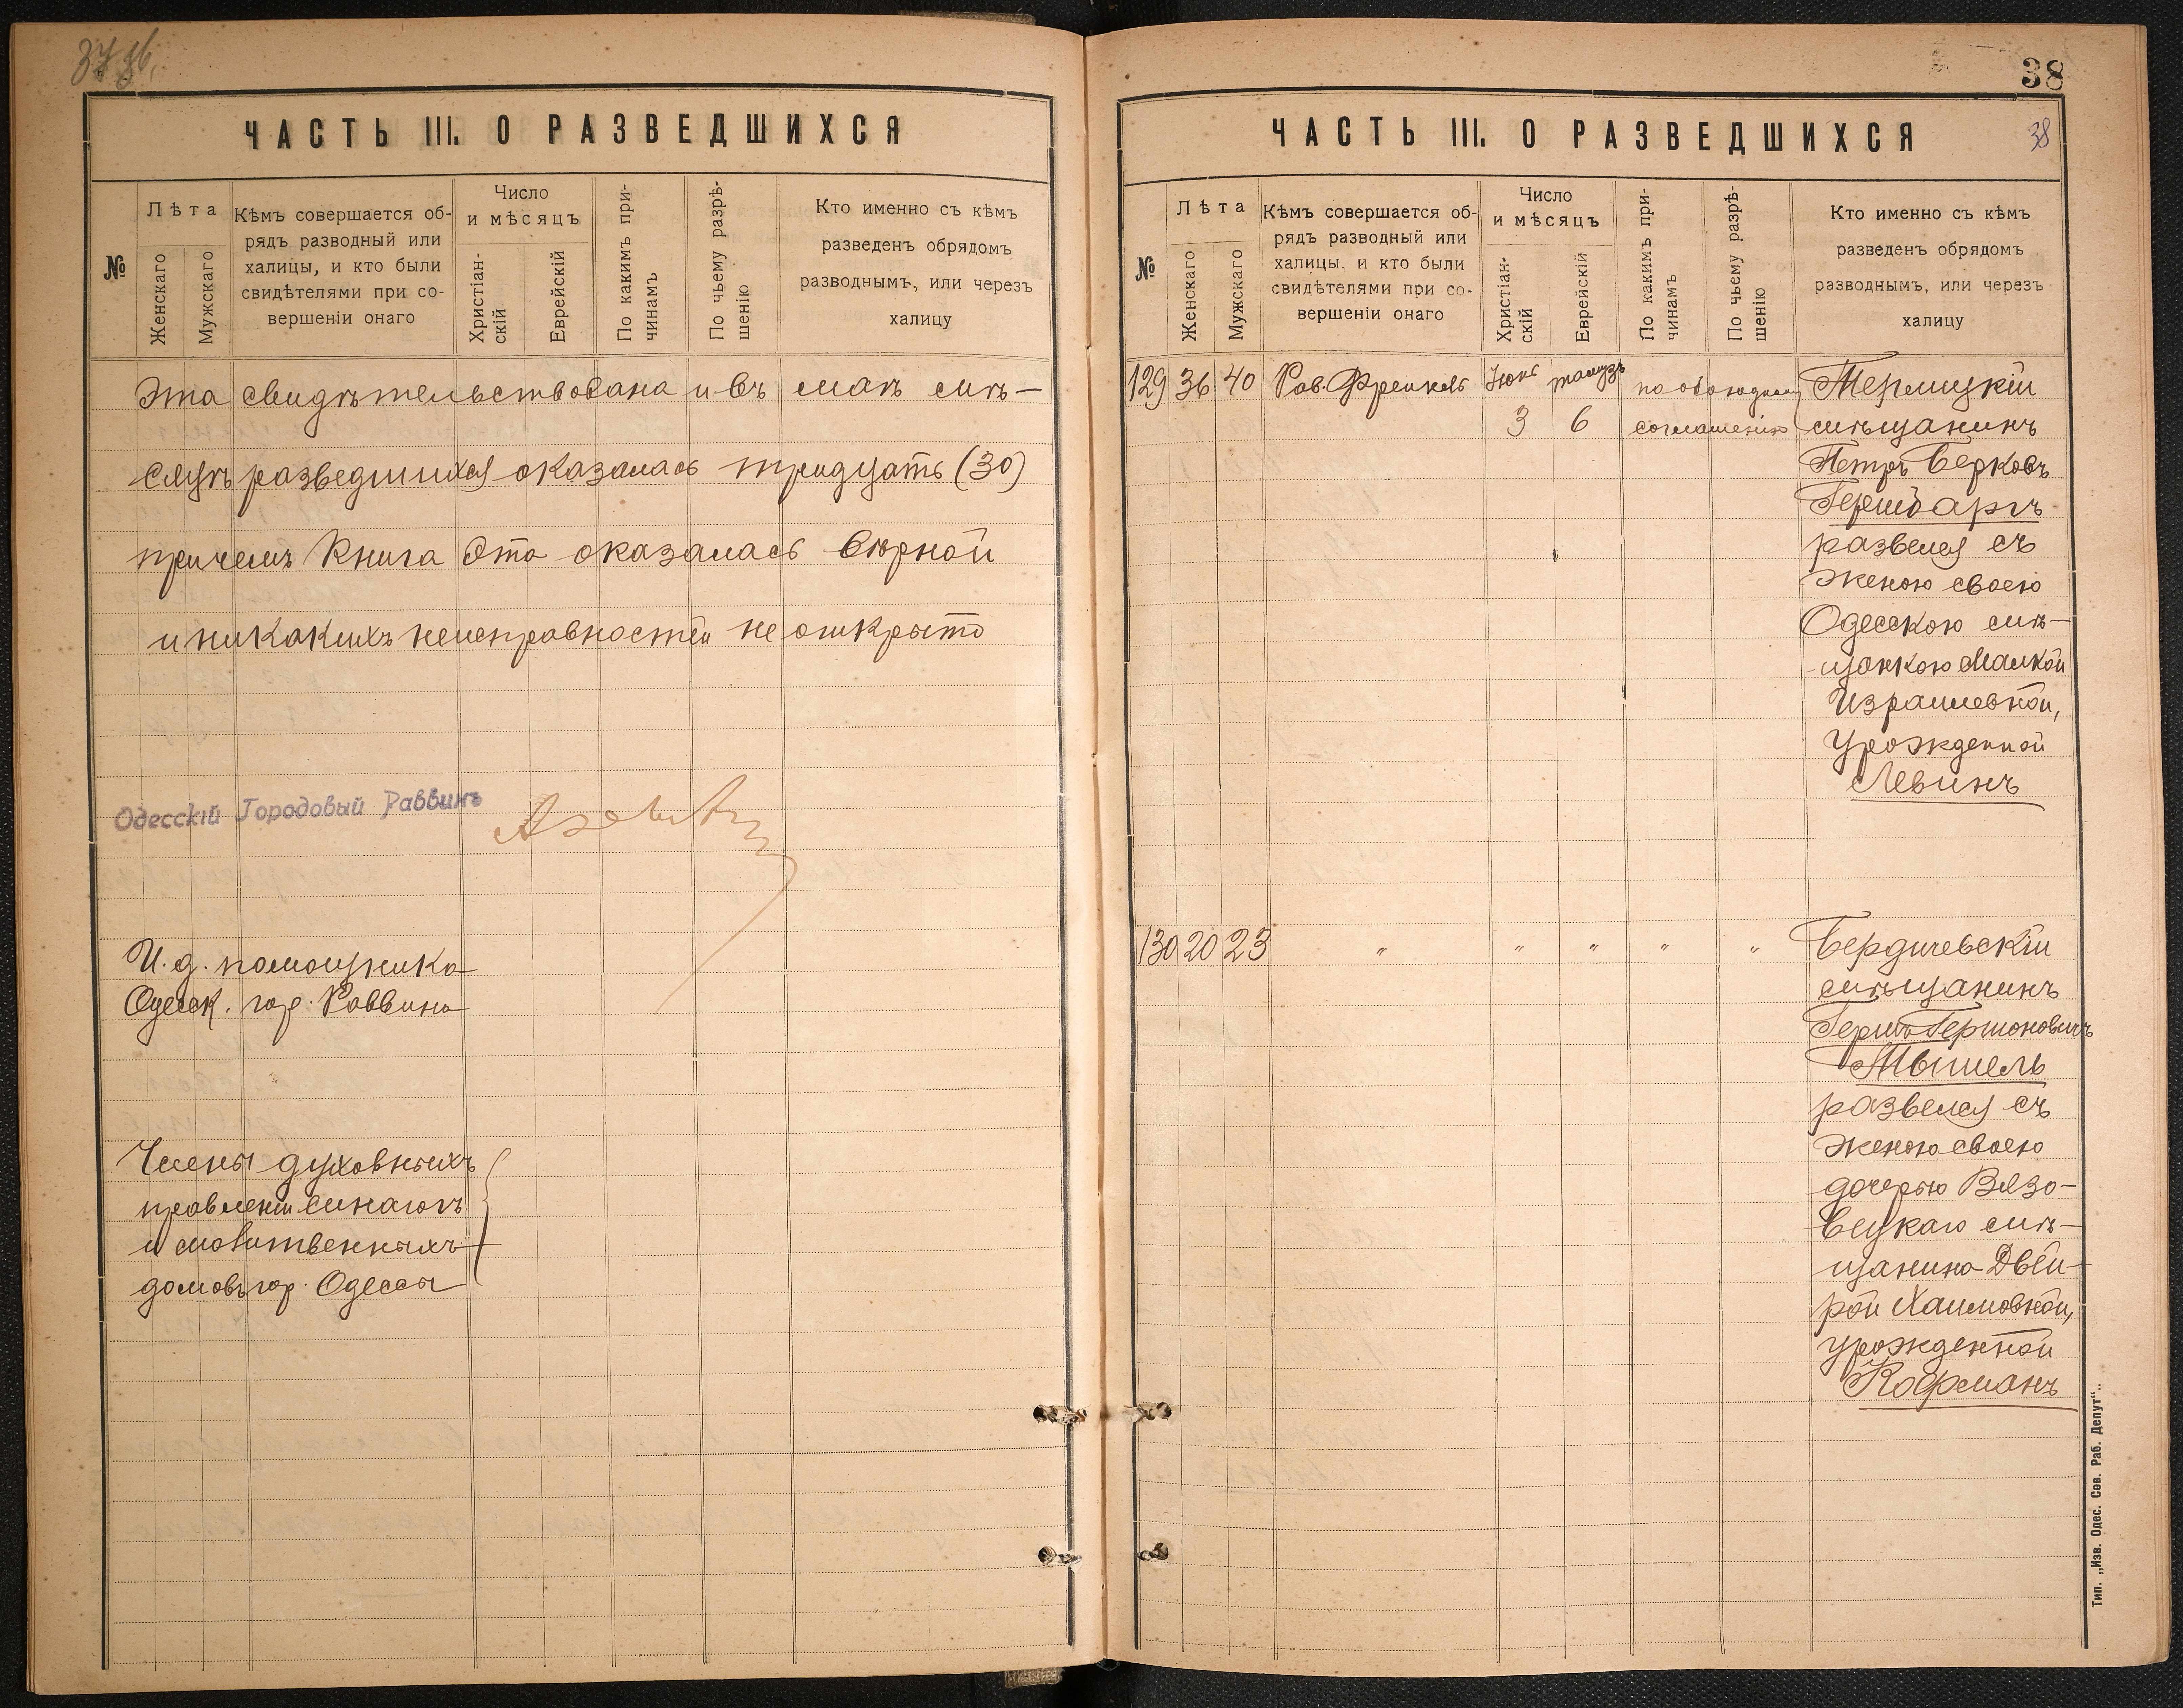 37 36.
ЧАСТЬ III. О РАЗВЕДШИХСЯ
№
Лѣта
Женскаго
Мужскаго
Кѣмъ совершается об-
рядъ разводный или
халицы, и кто были
свидѣтелями при со-
вершеніи онаго
Число
и мѣсяцъ
Христіан-
скій
Еврейскій
По какимъ при-
чинамъ
По чьему разрѣ-
шенію
Кто именно съ кѣмъ
разведенъ обрядомъ
разводнымъ, или черезъ
халицу
Эта свидѣтельствована и въ маѣ мѣ-
сяцѣ разведшихся оказалось тридцать (30)
причемъ Книга Эта оказалась вѣрной
и никакихъ неисправностей не открыто
Одесскій Городовый Раввинъ
И. д. помощника
Одесск. гор. Раввина
Члены духовныхъ
правленій синагогъ
и молитвенныхъ
домовъ гор. Одессы
38
ЧАСТЬ III. О РАЗВЕДШИХСЯ
38
№
Лѣта
Женскаго
Мужскаго
Кѣмъ совершается об-
рядъ разводный или
халицы, и кто были
свидѣтелями при со-
вершеніи онаго
Число
и мѣсяцъ
Христіан-
скій
Еврейскій
По какимъ при-
чинамъ
По чьему разрѣ-
шенію
Кто именно съ кѣмъ
разведенъ обрядомъ
разводнымъ, или черезъ
халицу
129 36 40 Рав. Френкель Іюнь 3 тамузъ 6 по обоюдному соглашенію
мѣщанинъ
Петръ Берковъ
Гершбаргъ
развелся съ
женою своею
Одесскою мѣ-
щанкою Малкой
Израилевной,
урожденной
Левинъ
130 20 23 " " " " " Бердичевскій
мѣщанинъ
Гершъ Гершоновичъ
Тышель
развелся съ
женою своею
дочерью Вязо-
вецкаго мѣ-
щанина Двей-
рой Хаимовной,
урожденной
Кофманъ
Тип. „Изв. Одес. Сов. Раб. Депут“..